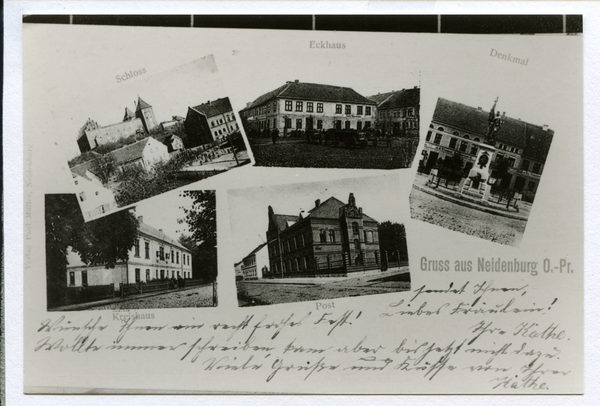 Eckhaus
Schloss
Denkmal
Gruss aus Neidenburg O.-Pr.
Kreishaus
Post
sendet Ihnen,
Liebes Fräulein!
Ihre Käthe.
Wünsche Ihnen ein recht frohes Fest!
Wollte immer schreiben kam aber bis jetzt nicht dazu.
Viele Grüße und Küsse von Ihrer
Käthe.